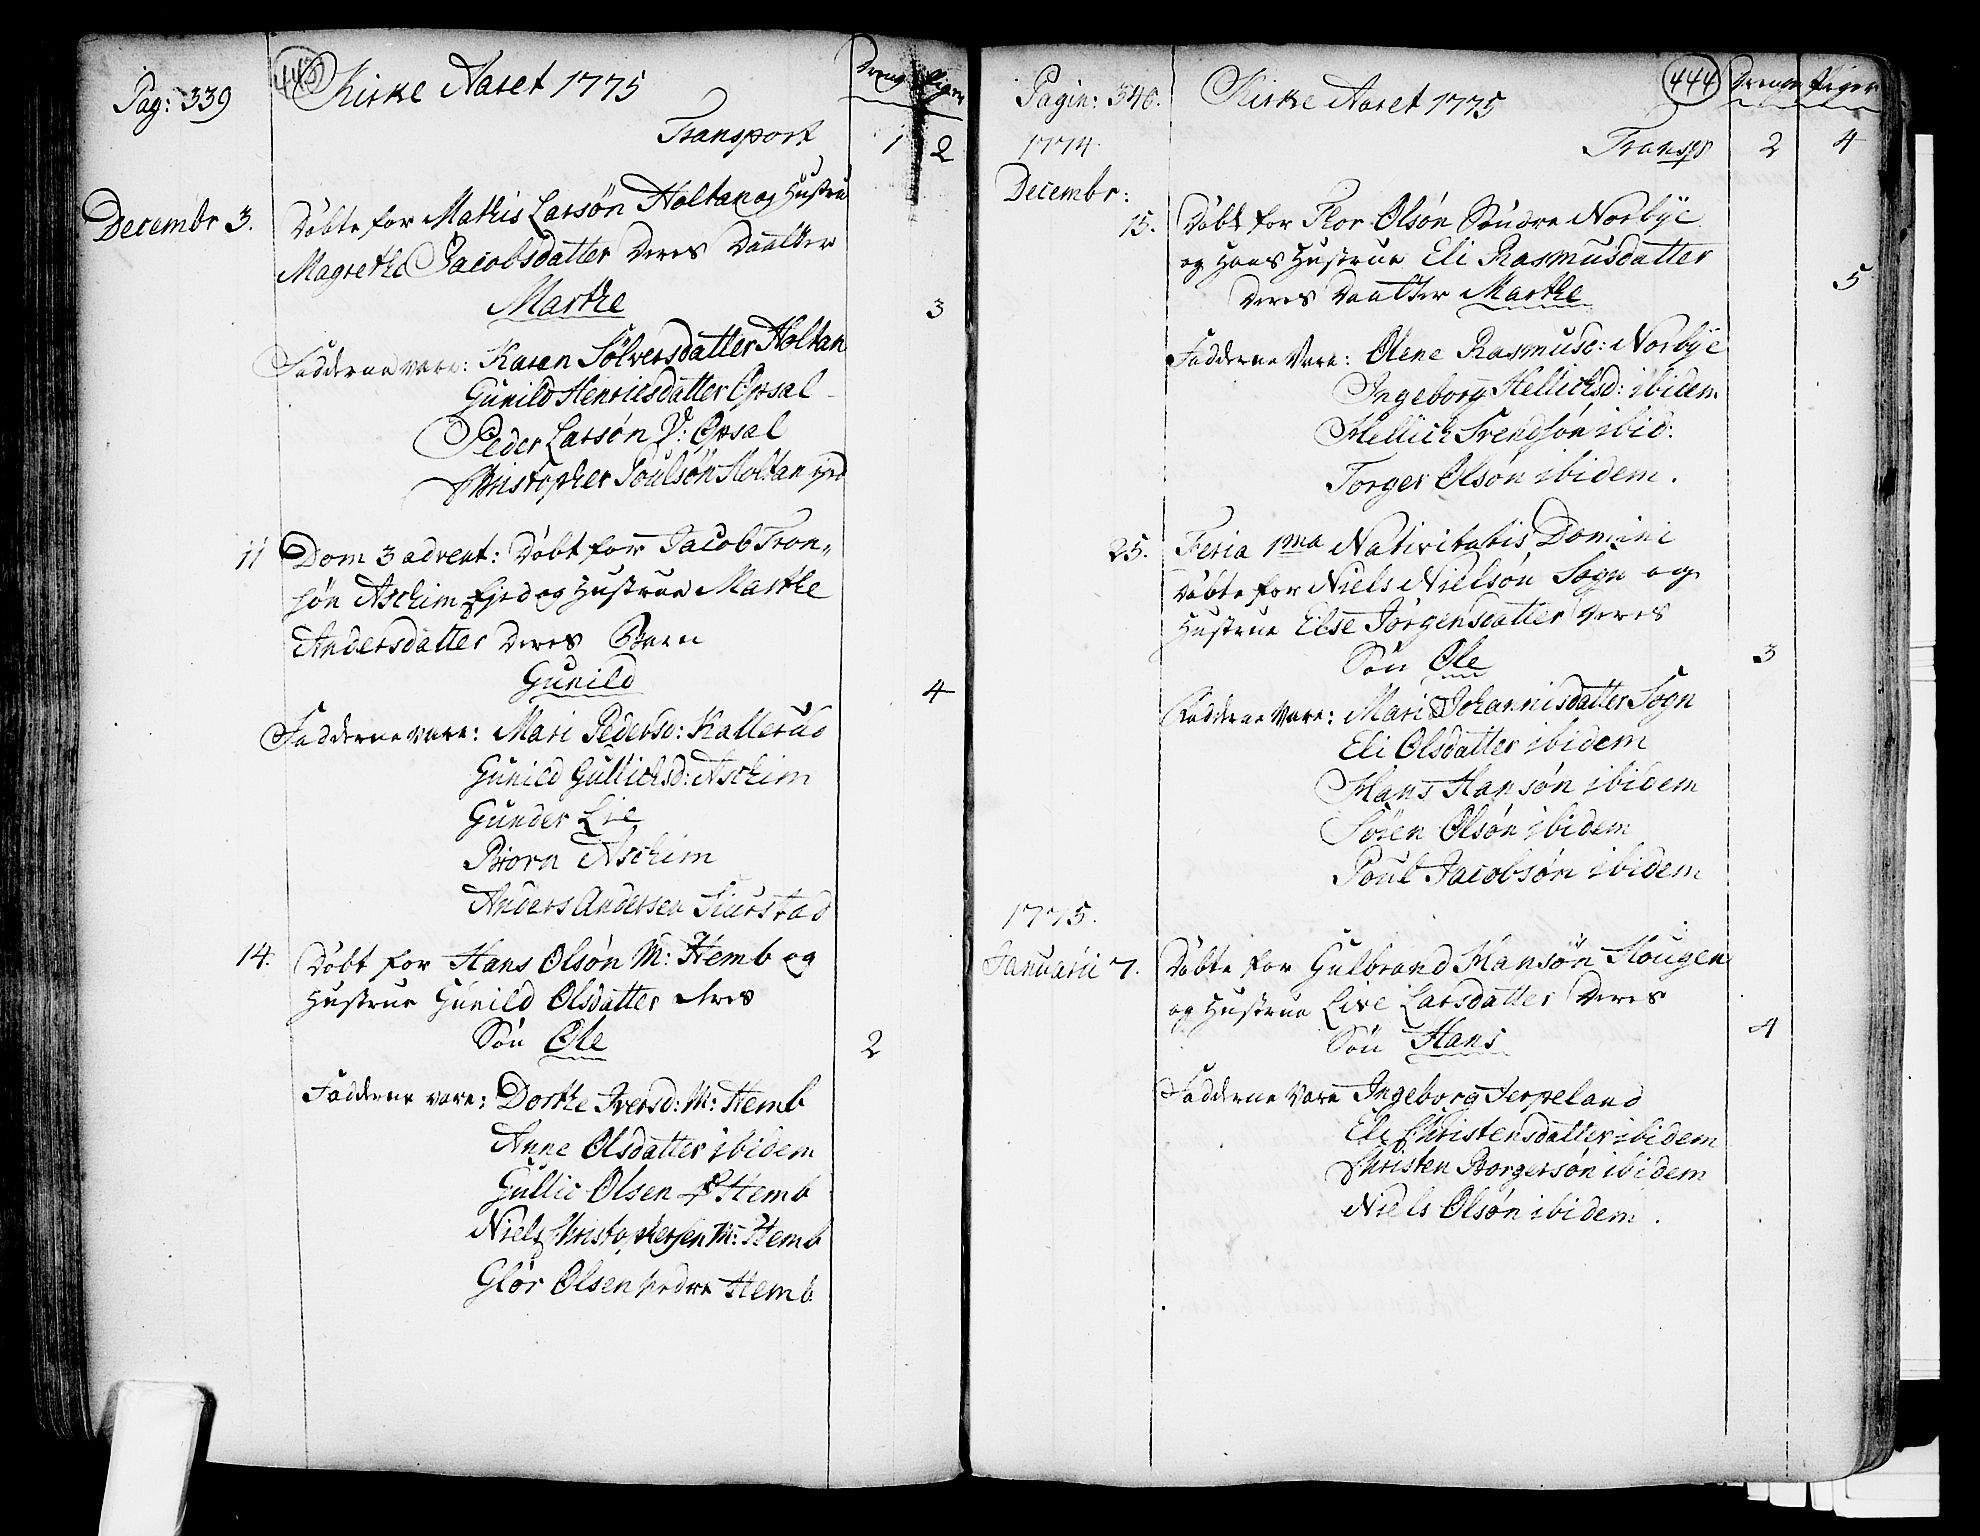 Pag: 339
443
Kirke Aaret 1775
Dreng Piger
Transport 1 2
Decembr 3. Døbte for Mathis Larsøn Holtan og Hustru
Magrethe Jacobsdatter deres Daatter
Marthe 3
Fadderne vare: Karen Sølversdatter Holtan
Gunild Henrichsdatter Opsal
Peder Larsøn V: Opsal
Christopher Poulsøn Holtan ejed
11 Dom 3 advent: Døbt for Jacob Tron„
søn Aschim Ejed og Hustrue Marthe
Andersdatter deres Barn
Gunild 4
Fadderne vare: Mari Pedersd: Kallerud
Gunild Gullichsd: Aschim
Gunder Lie
Biorn Aschim
Anders Andersen Kiørstad
14. Døbt for Hans Olsøn M: Hemb og
Hustrue Gunild Olsdatter deres
Søn Ole 2
Fadderne vare: Dorthe Iversd: M: Hemb
Anne Olsdatter ibidem
Gullic Olsen Hemb
Niels Christophersen M: Hemb
Glør Olsen Nedre Hemb
Pagin: 340.
Kirke Aaret 1775
444
Drenge Piger
1774. Transp 2 4
Decembr:
15. Døbt for Flor Olsøn Søndre Norbye
og Hans Hustrue Eli Rasmusdatter
deres Daatter Marthe 5
Fadderne Vare: Olene Rasmusd: Norbye
Ingeborg Hellichsd: ibidem
Hellich Svendsøn ibid:
Torger Olsøn ibidem.
25. Feria 1ma Nativitatis Domini
Døbte for Niels Nielsøn Sogn og
Hustrue Else Jørgensdatter deres
Søn Ole 3
Fadderne Vare: Mari Johannisdatter Sogn
Eli Olsdatter ibidem
Hans Hansøn ibidem
Søren Olsøn ibidem
Poul Jacobsøn ibidem
1775.
Januarii 7. Døbte for Gulbrand Hansøn Hougen
og Hustrue Live Larsdatter deres
Søn Hans 4
Fadderne Vare Ingeborg Serpeland
Eli Christensdatter ibidem
Christen Borgersøn ibidem
Niels Olsøn ibidem.